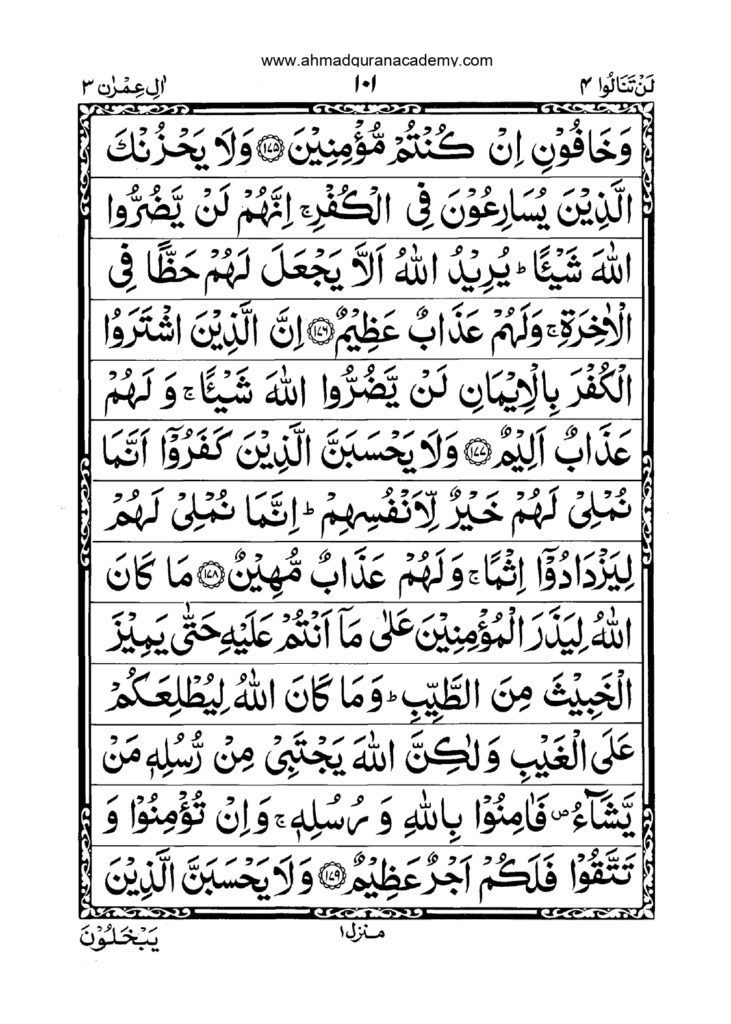 www.ahmadquranacademy.com
لَنۡ تَنَالُوا ۴ ۱۰۱ اٰلِ عِمۡرٰن ۳
وَخَافُوۡنِ اِنۡ كُنۡتُمۡ مُّؤۡمِنِيۡنَ ۱۷۵ وَلَا يَحۡزُنۡكَ
الَّذِيۡنَ يُسَارِعُوۡنَ فِى الۡكُفۡرِ ۚ اِنَّهُمۡ لَنۡ يَّضُرُّوا
اللّٰهَ شَيۡـًٔا ؕ يُرِيۡدُ اللّٰهُ اَلَّا يَجۡعَلَ لَهُمۡ حَظًّا فِى
الۡاٰخِرَةِ ۚ وَلَهُمۡ عَذَابٌ عَظِيۡمٌ ۱۷۶ اِنَّ الَّذِيۡنَ اشۡتَرَوُا
الۡكُفۡرَ بِالۡاِيۡمَانِ لَنۡ يَّضُرُّوا اللّٰهَ شَيۡـًٔا ۚ وَلَهُمۡ
عَذَابٌ اَلِيۡمٌ ۱۷۷ وَلَا يَحۡسَبَنَّ الَّذِيۡنَ كَفَرُوۡۤا اَنَّمَا
نُمۡلِىۡ لَهُمۡ خَيۡرٌ لِّاَنۡفُسِهِمۡ ؕ اِنَّمَا نُمۡلِىۡ لَهُمۡ
لِيَزۡدَادُوۡۤا اِثۡمًا ۚ وَلَهُمۡ عَذَابٌ مُّهِيۡنٌ ۱۷۸ مَا كَانَ
اللّٰهُ لِيَذَرَ الۡمُؤۡمِنِيۡنَ عَلٰى مَاۤ اَنۡتُمۡ عَلَيۡهِ حَتّٰى يَمِيۡزَ
الۡخَبِيۡثَ مِنَ الطَّيِّبِ ؕ وَمَا كَانَ اللّٰهُ لِيُطۡلِعَكُمۡ
عَلَى الۡغَيۡبِ وَلٰكِنَّ اللّٰهَ يَجۡتَبِىۡ مِنۡ رُّسُلِهٖ مَنۡ
يَّشَآءُ ۖ فَاٰمِنُوۡا بِاللّٰهِ وَرُسُلِهٖ ۚ وَاِنۡ تُؤۡمِنُوۡا وَ
تَتَّقُوۡا فَلَكُمۡ اَجۡرٌ عَظِيۡمٌ ۱۷۹ وَلَا يَحۡسَبَنَّ الَّذِيۡنَ
منزل ۱
يَبۡخَلُوۡنَ